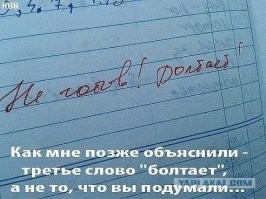 КНН
Не готов! Болтает!
Как мне позже объяснили -
третье слово "болтает",
а не то, что вы подумали...
YAPLAKAL.COM